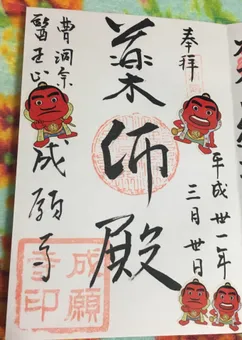 奉拝
平成卅一年
三月卅日
薬師殿
曹洞宗
醫王山
成願寺
成願
寺印